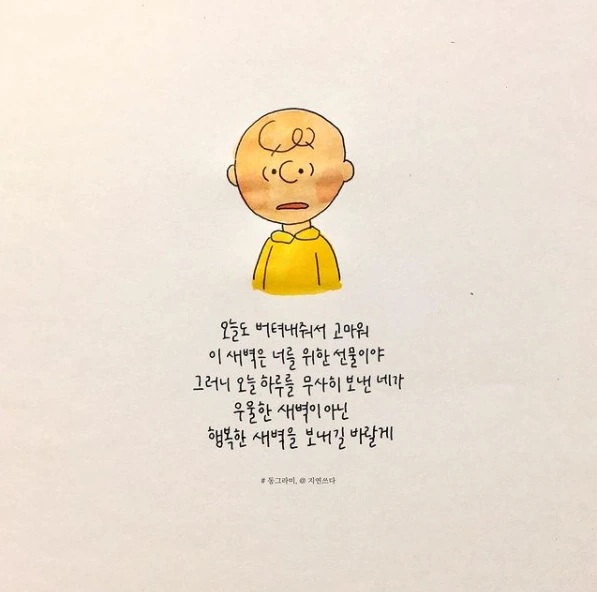 오늘도 버텨내줘서 고마워
이 새벽은 너를 위한 선물이야
그러니 오늘 하루를 무사히 보낸 네가
우울한 새벽이 아닌
행복한 새벽을 보내길 바랄게
# 동그라미, @ 지연쓰다